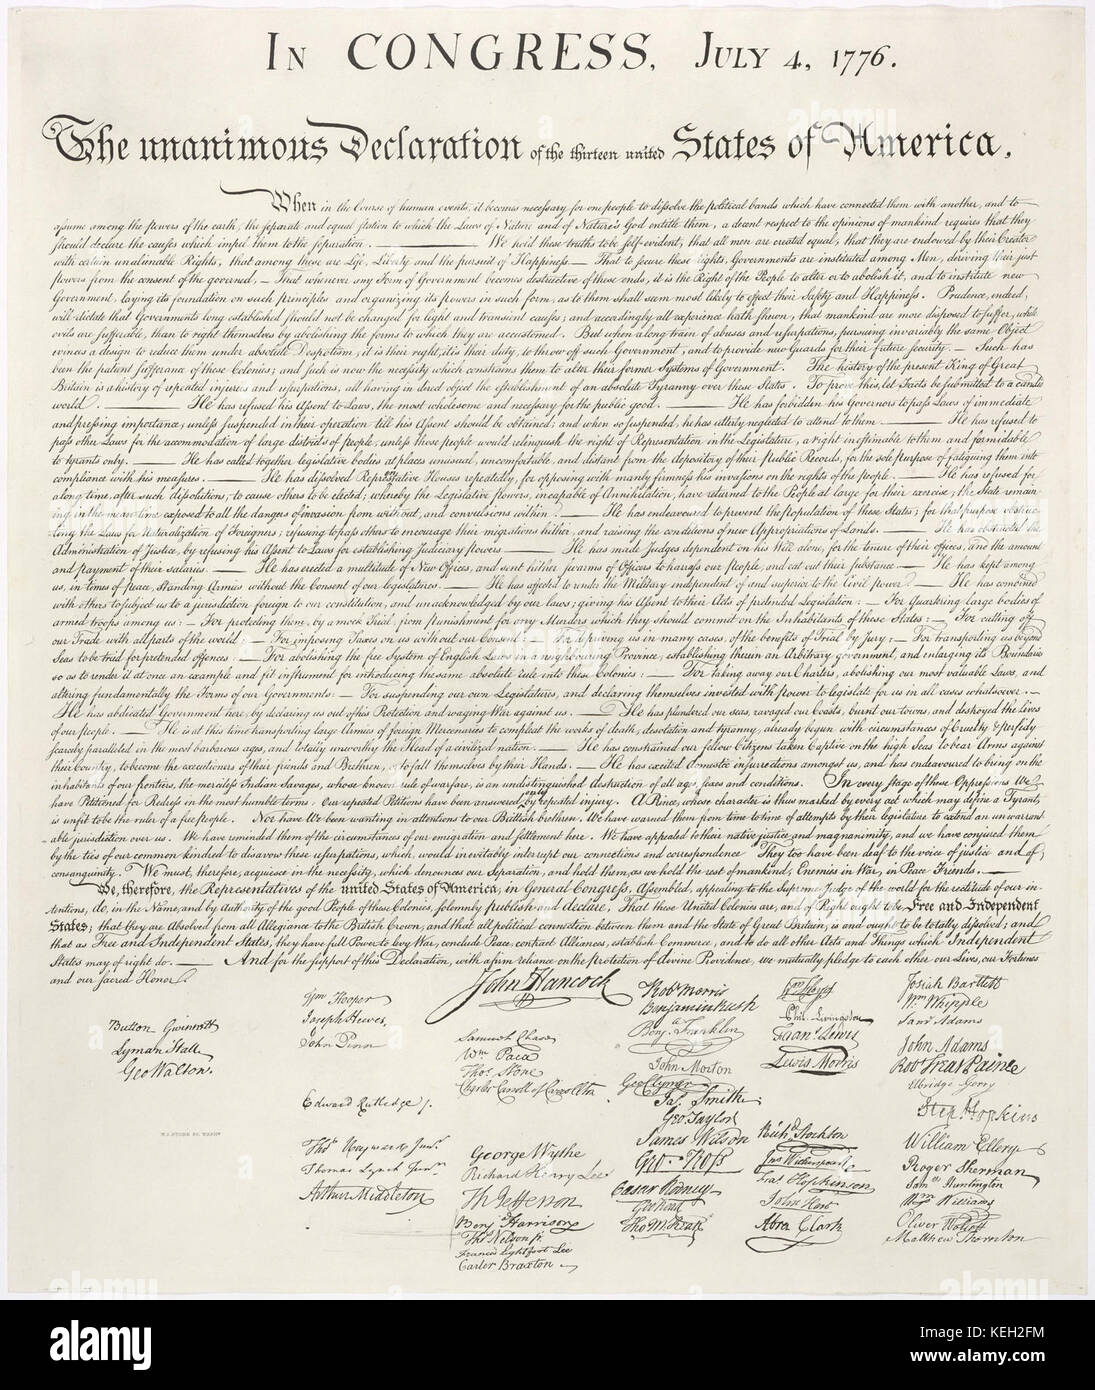 IN CONGRESS, JULY 4, 1776.
The unanimous Declaration of the thirteen united States of America,
When in the Course of human events, it becomes necessary for one people to dissolve the political bands which have connected them with another, and to
assume among the powers of the earth, the separate and equal station to which the Laws of Nature and of Nature's God entitle them, a decent respect to the opinions of mankind requires that they
should declare the causes which impel them to the separation. — We hold these truths to be self-evident, that all men are created equal, that they are endowed by their Creator
with certain unalienable Rights, that among these are Life, Liberty and the pursuit of Happiness — That to secure these rights, Governments are instituted among Men, deriving their just
powers from the consent of the governed, — That whenever any Form of Government becomes destructive of these ends, it is the Right of the People to alter or to abolish it, and to institute new
Government, laying its foundation on such principles and organizing its powers in such form, as to them shall seem most likely to effect their Safety and Happiness. Prudence, indeed,
will dictate that Governments long established should not be changed for light and transient causes; and accordingly all experience hath shewn, that mankind are more disposed to suffer, while
evils are sufferable, than to right themselves by abolishing the forms to which they are accustomed. But when a long train of abuses and usurpations, pursuing invariably the same Object
evinces a design to reduce them under absolute Despotism, it is their right, it is their duty, to throw off such Government, and to provide new Guards for their future security. — Such has
been the patient sufferance of these Colonies; and such is now the necessity which constrains them to alter their former Systems of Government. The history of the present King of Great
Britain is a history of repeated injuries and usurpations, all having in direct object the establishment of an absolute Tyranny over these States. To prove this, let Facts be submitted to a candid
world. — He has refused his Assent to Laws, the most wholesome and necessary for the public good. — He has forbidden his Governors to pass Laws of immediate
and pressing importance, unless suspended in their operation till his Assent should be obtained; and when so suspended, he has utterly neglected to attend to them. — He has refused to
pass other Laws for the accommodation of large districts of people, unless those people would relinquish the right of Representation in the Legislature, a right inestimable to them and formidable
to tyrants only. — He has called together legislative bodies at places unusual, uncomfortable, and distant from the depository of their Public Records, for the sole purpose of fatiguing them into
compliance with his measures. — He has dissolved Representative Houses repeatedly, for opposing with manly firmness his invasions on the rights of the people. — He has refused for
a long time, after such dissolutions, to cause others to be elected; whereby the Legislative powers, incapable of Annihilation, have returned to the People at large for their exercise; the State remain
ing in the mean time exposed to all the dangers of invasion from without, and convulsions within. — He has endeavoured to prevent the population of these States; for that purpose obstruc
ting the Laws for Naturalization of Foreigners; refusing to pass others to encourage their migrations hither, and raising the conditions of new Appropriations of Lands. — He has obstructed the
Administration of Justice, by refusing his Assent to Laws for establishing Judiciary powers. — He has made Judges dependent on his Will alone, for the tenure of their offices, and the amount
and payment of their salaries. — He has erected a multitude of New Offices, and sent hither swarms of Officers to harrass our people, and eat out their substance. — He has kept among
us, in times of peace, Standing Armies without the Consent of our legislatures. — He has affected to render the Military independent of and superior to the Civil power. — He has combined
with others to subject us to a jurisdiction foreign to our constitution, and unacknowledged by our laws; giving his Assent to their Acts of pretended Legislation: — For Quartering large bodies of
armed troops among us: — For protecting them, by a mock Trial, from punishment for any Murders which they should commit on the Inhabitants of these States: — For cutting off
our Trade with all parts of the world: — For imposing Taxes on us without our Consent: — For depriving us in many cases, of the benefits of Trial by Jury: — For transporting us beyond
Seas to be tried for pretended offences: — For abolishing the free System of English Laws in a neighbouring Province, establishing therein an Arbitrary government, and enlarging its Boundaries
so as to render it at once an example and fit instrument for introducing the same absolute rule into these Colonies: — For taking away our Charters, abolishing our most valuable Laws, and
altering fundamentally the Forms of our Governments: — For suspending our own Legislatures, and declaring themselves invested with power to legislate for us in all cases whatsoever. —
He has abdicated Government here, by declaring us out of his Protection and waging War against us. — He has plundered our seas, ravaged our Coasts, burnt our towns, and destroyed the lives
of our people. — He is at this time transporting large Armies of foreign Mercenaries to compleat the works of death, desolation and tyranny, already begun with circumstances of Cruelty & perfidy
scarcely paralleled in the most barbarous ages, and totally unworthy the Head of a civilized nation. — He has constrained our fellow Citizens taken Captive on the high Seas to bear Arms against
their Country, to become the executioners of their friends and Brethren, or to fall themselves by their Hands. — He has excited domestic insurrections amongst us, and has endeavoured to bring on the
inhabitants of our frontiers, the merciless Indian Savages, whose known rule of warfare, is an undistinguished destruction of all ages, sexes and conditions. In every stage of these Oppressions We
have Petitioned for Redress in the most humble terms: Our repeated Petitions have been answered only by repeated injury. A Prince, whose character is thus marked by every act which may define a Tyrant,
is unfit to be the ruler of a free people. Nor have We been wanting in attentions to our Brittish brethren. We have warned them from time to time of attempts by their legislature to extend an unwarrant
able jurisdiction over us. We have reminded them of the circumstances of our emigration and settlement here. We have appealed to their native justice and magnanimity, and we have conjured them
by the ties of our common kindred to disavow these usurpations, which, would inevitably interrupt our connections and correspondence. They too have been deaf to the voice of justice and of
consanguinity. We must, therefore, acquiesce in the necessity, which denounces our Separation, and hold them, as we hold the rest of mankind, Enemies in War, in Peace Friends. —
We, therefore, the Representatives of the united States of America, in General Congress, Assembled, appealing to the Supreme Judge of the world for the rectitude of our in-
tentions, do, in the Name, and by Authority of the good People of these Colonies, solemnly publish and declare, That these United Colonies are, and of Right ought to be Free and Independent
States; that they are Absolved from all Allegiance to the British Crown, and that all political connection between them and the State of Great Britain, is and ought to be totally dissolved; and
that as Free and Independent States, they have full Power to levy War, conclude Peace, contract Alliances, establish Commerce, and to do all other Acts and Things which Independent
States may of right do. — And for the support of this Declaration, with a firm reliance on the protection of divine Providence, we mutually pledge to each other our Lives, our Fortunes
and our sacred Honor.
Button Gwinnett
Lyman Hall
Geo Walton.
Wm Hooper
Joseph Hewes,
John Penn
Edward Rutledge
Thos Heyward Junr.
Thomas Lynch Junr.
Arthur Middleton
John Hancock
Samuel Chase
Wm Paca
Thos Stone
Charles Carroll of Carrollton
George Wythe
Richard Henry Lee
Th Jefferson
Benj Harrison
Thos Nelson jr.
Francis Lightfoot Lee
Carter Braxton
Robt Morris
Benjamin Rush
Benja Franklin
John Morton
Geo Clymer
Jas Smith
Geo Taylor
James Wilson
Geo Ross
Caesar Rodney
Geo Read
Tho M:Kean
Wm Floyd
Phil. Livingston
Frans Lewis
Lewis Morris
Richd Stockton
Jno Witherspoon
Fras Hopkinson
John Hart
Abra Clark
Josiah Bartlett
Wm Whipple
Saml Adams
John Adams
Robt Treat Paine
Elbridge Gerry
Step Hopkins
William Ellery
Roger Sherman
Saml Huntington
Wm Williams
Oliver Wolcott
Matthew Thornton
W.J. STONE SC. WASHN
alamy
Image ID: KEH2FM
www.alamy.com